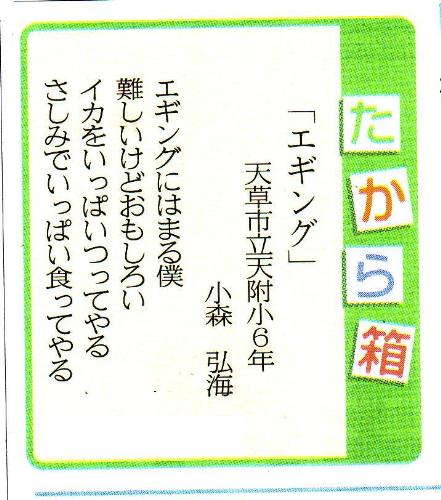 たから箱
「エギング」
天草市立天附小6年
小森　弘海
エギングにはまる僕
難しいけどおもしろい
イカをいっぱいつってやる
さしみでいっぱい食ってやる